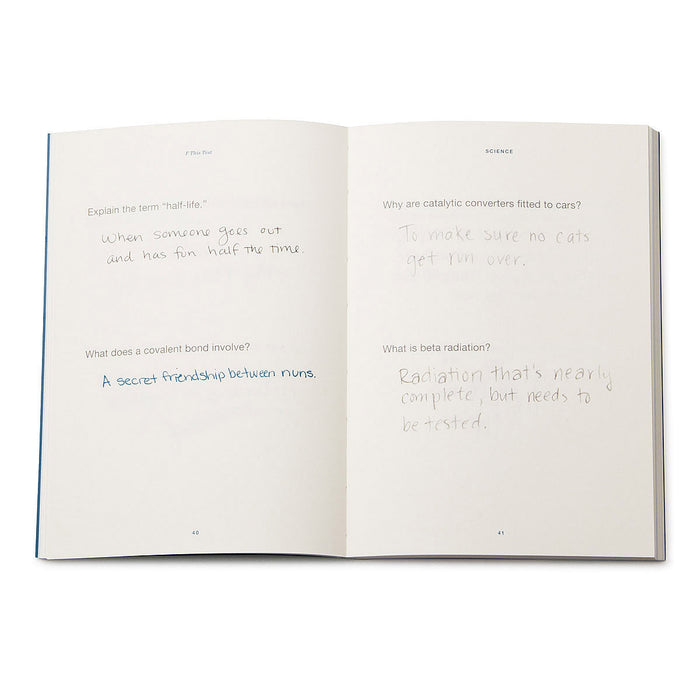 F This Test
Explain the term “half-life.”
When someone goes out
and has fun half the time.
What does a covalent bond involve?
A secret friendship between nuns.
40
SCIENCE
Why are catalytic converters fitted to cars?
To make sure no cats
get run over.
What is beta radiation?
Radiation that's nearly
complete, but needs to
be tested.
41